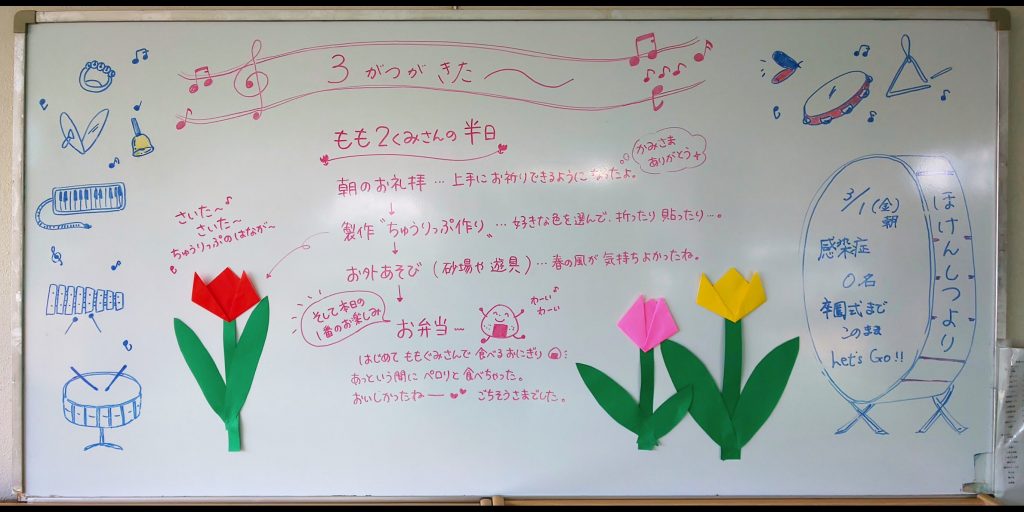 3 がつが きた 〜
もも2くみさんの半日
朝のお礼拝 … 上手にお祈りできるようになったよ。
かみさま
ありがとう
↓
製作 "ちゅうりっぷ作り" … 好きな色を選んで、折ったり 貼ったり…。
さいた〜♪
さいた〜
ちゅうりっぷのはなが〜
↓
お外あそび (砂場や遊具) … 春の風が 気持ちよかったね。
↓
そして本日の
1番のお楽しみ
お弁当〜
わーい
わーい
はじめて ももぐみさんで 食べるおにぎり
あっという間に ペロリと 食べちゃった。
おいしかったねー ごちそうさまでした。
ほけんしつより
3/1(金)
朝
感染症
0名
卒園式まで
このまま
Let's Go!!